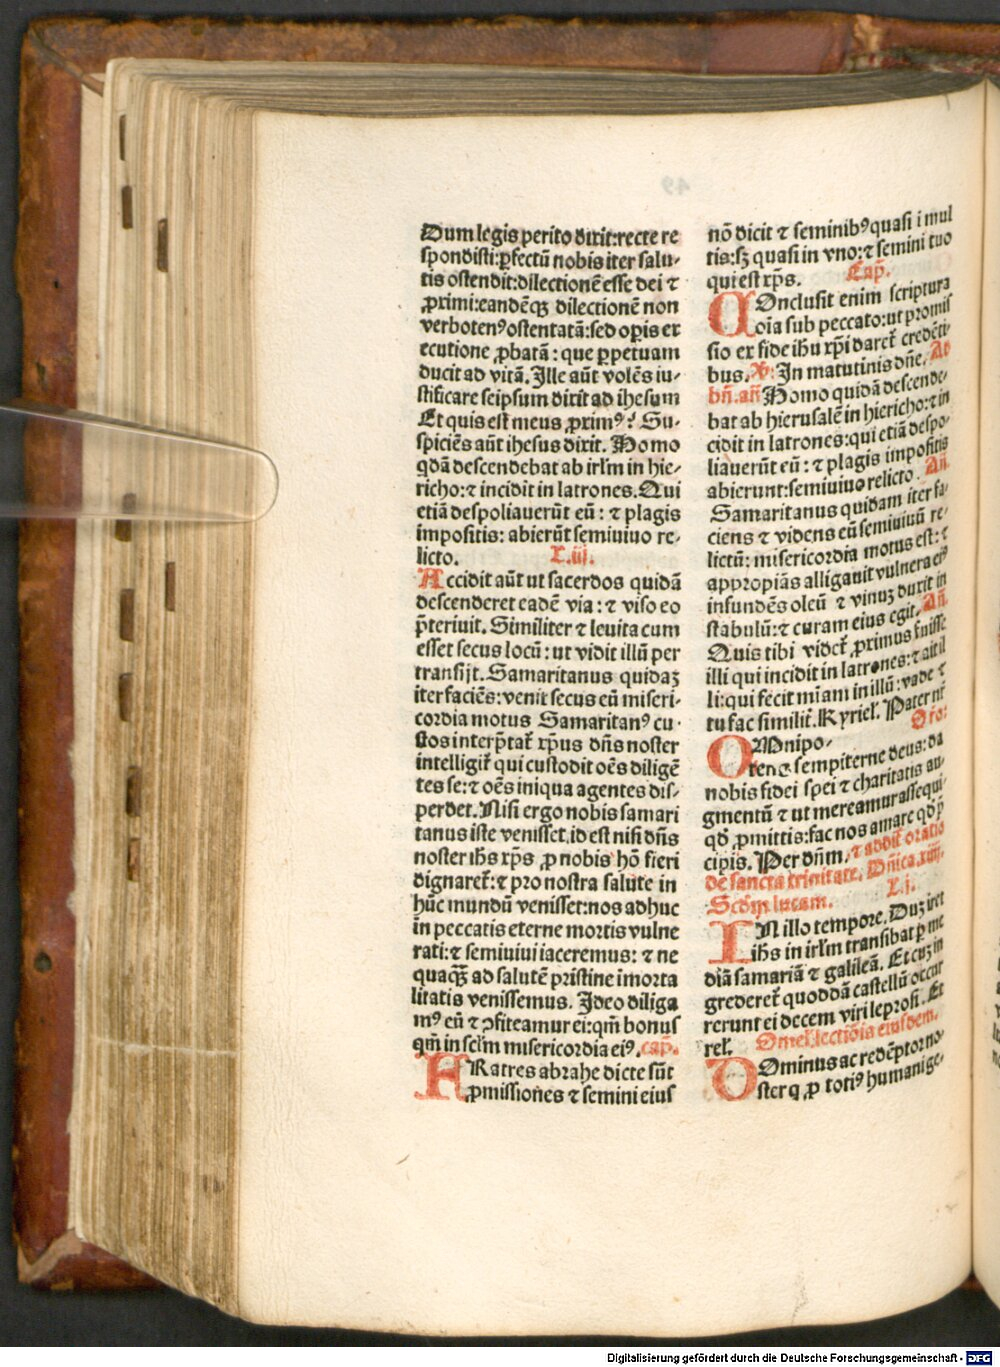 Dum legis perito dixit: recte re
spondisti: ꝑfectū nobis iter salu-
tis ostendit: dilectionē esse dei ⁊
ꝓximi: eandēqꝫ dilectionē non
verbotenꝰ ostentatā: sed oꝑis ex
ecutione ꝓbatā: que ꝑpetuam
ducit ad vitā. Ille aūt volēs iu-
stificare seipsum dixit ad ihesum
Et quis est meus ꝓximꝰ? Su-
spiciēs aūt ihesus dixit. Homo
qdā descendebat ab irl̄m in hie-
richo: ⁊ incidit in latrones. Qui
etiā despoliauerūt eū: ⁊ plagis
impositis: abierūt semiuiuo re-
licto. L. iij.
Accidit aūt ut sacerdos quidā
descenderet eadē via: ⁊ viso eo
p̄teriuit. Similiter ⁊ leuita cum
esset secus locū: ut vidit illū per
transijt. Samaritanus quidaꝫ
iter faciēs: venit secus eū miseri-
cordia motus Samaritanꝰ cu-
stos interp̄tat̄ xp̄us dn̄s noster
intelligit̄ qui custodit oēs diligē
tes se: ⁊ oēs iniqua agentes dis-
perdet. Nisi ergo nobis samari
tanus iste venisset. id est nisi dn̄s
noster ih̄s xp̄s ꝓ nobis hō fieri
dignaret̄: ⁊ pro nostra salute in
hūc mundū venisset: nos adhuc
in peccatis eterne mortis vulne
rati: ⁊ semiuiui iaceremus: ⁊ ne
quaqꝫ̄ ad salutē pristine īmorta
litatis venissemus. Ideo diliga
mꝰ eū ⁊ ꝯfiteamur ei: qm̄ bonus
qm̄ in sc̄lm misericordia eiꝰ. cap̄.
FRatres abrahe dicte sūt
ꝓmissiones ⁊ semini eius
nō dicit ⁊ seminibꝰ quasi ī mul
tis: sꝫ quasi in vno: ⁊ semini tuo
qui est xp̄s. Cap̄.
COnclusit enim scriptura
oīa sub peccato: ut promis
sio ex fide ih̄u xp̄i daret̄ credēti-
bus. V: In matutinis dn̄e. Ad
bn̄. an̄ Homo quidā descende-
bat ab hierusalē in hiericho: ⁊ in
cidit in latrones: qui etiā despo-
liauerūt eū: ⁊ plagis impositis
abierunt: semiuiuo relicto. An̄.
Samaritanus quidam iter fa-
ciens ⁊ videns eū semiuiuū re-
lictū: misericordia motus est: ⁊
appropiās alligauit vulnera eiꝰ
infundēs oleū ⁊ vinuꝫ duxit in
stabulū: ⁊ curam eius egit. An̄.
Quis tibi videt̄ ꝓximus fuisse
illi qui incidit in latrones: ⁊ ait il
li: qui fecit mīam in illū: vade ⁊
tu fac similit̄. Kyriel̄. Pater nr̄
Oro:
OMnipo-
tens sempiterne deus: da
nobis fidei spei ⁊ charitatis au-
gmentū ⁊ ut mereamur assequi
qd̄ ꝓmittis: fac nos amare qd̄ p̄
cipis. Per dn̄m. ⁊ addit̄ oratio
de sancta trinitate. Dn̄ica. xiiij.
Scd̄m lucam. L. j.
IN illo tempore. Duꝫ iret
ih̄s in irl̄m transibat ꝑ me
diā samariā ⁊ galileā. Et cuꝫ in
grederet̄ quoddā castellū occur
rerunt ei decem viri leprosi. Et
rel̄. Omel̄. lectiōis eiusdem.
DOminus ac redēptor no-
ster q ꝓ totiꝰ humani ge-
Digitalisierung gefördert durch die Deutsche Forschungsgemeinschaft - DFG